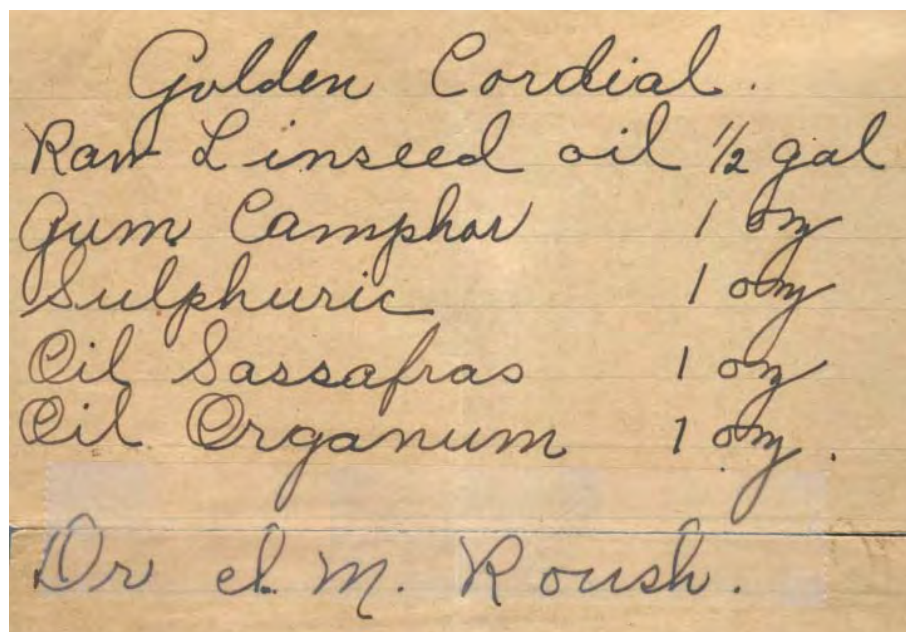 Golden Cordial.
Raw Linseed oil 1/2 gal
Gum Camphor 1 oz
Sulphuric 1 oz
Oil Sassafras 1 oz
Oil Organum 1 oz.
Dr M. Roush.